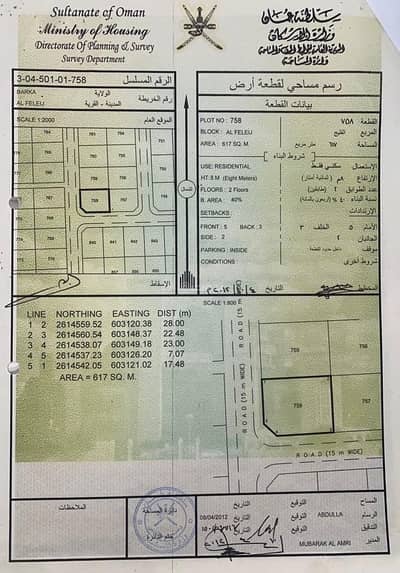 Sultanate of Oman
Ministry of Housing
Directorate Of Planning & Survey
Survey Department
سلطنة عمان
وزارة الإسكان
3-04-501-01-758
الرقم المسلسل
رسم مساحي لقطعة أرض
BARKA
الولاية
رقم الخريطة
AL FELEIJ
المدينة - القرية
بيانات القطعة
SCALE 1:2000
الموقع العام
PLOT NO : 758
القطعة ٧٥٨
BLOCK : AL FELEIJ
المربع الفليج
AREA : 617 SQ. M.
المساحة ٦١٧ متر مربع
شروط البناء
USE: RESIDENTIAL
الاستعمال سكني فقط
HT: 8 M (Eight Meters)
الارتفاع ٨م (ثمانية أمتار)
FLOORS : 2 Floors
عدد الطوابق ٢ (طابقين)
B. AREA 40%
نسبة البناء ٤٠% (أربعون بالمائة)
SETBACKS:
الإرتدادات
FRONT : 5 BACK : 3
الأمام ٥ الخلف ٣
SIDE : 2
الجانبان ٢
PARKING : INSIDE
موقف داخل حدود القطعة
CONDITIONS
شروط أخرى
الشمال
الإسقاط
المخطط
التاريخ
LINE NORTHING EASTING DIST (m)
1 2 2614559.52 603120.38 28.00
2 3 2614560.54 603148.37 22.48
3 4 2614538.07 603149.18 23.00
4 5 2614537.23 603126.20 7.07
5 1 2614542.05 603121.02 17.48
AREA = 617 SQ. M.
SCALE 1:800
ROAD (15 m WIDE)
759
758
757
ROAD (15 m WIDE)
الملاحظات
دائرة المساحة
08/04/2012
التاريخ
التوقيع
المساح
ABDULLA
التاريخ
التوقيع
الرسام
التاريخ
التوقيع
التدقيق
MUBARAK AL AMRI
المدير